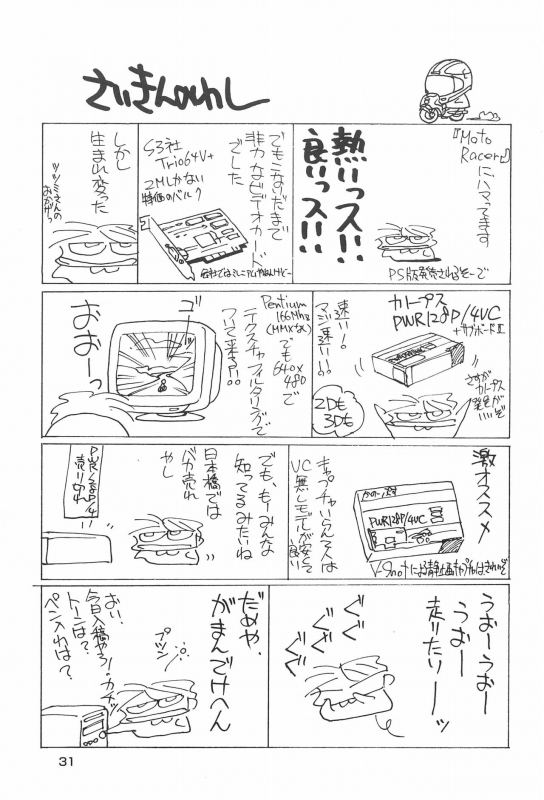 さいきんのわし
『Moto
Racer』
にハマってます
熱いっス!!
良いっス!!
PS版発売されるそーで
でもこないだまで
非力なビデオカード
でした
S3社
Trio64V+
2Mしかない
特価のバルク
しかし
生まれ変った
ツツミさんの
おかげ
カノープス
PWR128P/4VC
+サブボードⅡ
さすが
カノープス
発色が
いいぞ
速い!!
マジ速い!!
2Dも
3Dも
Pentium
166MHz
(MMX無)
でも
640x
480で
テクスチャフィルタリングで
ついて来る!!
ゴー
おおーっ
激オススメ
カノープス
PWR128P/4VC
キャプチャいらん人は
VC無しモデルが安くて
良い
でも、もーみんな
知ってるみたいね
日本橋では
バカ売れ
やし
PWR128P/4
売り切れ
うおーうおー
うおー
走りたりーッ
ぐぐ
ぐぐ
だめや、
がまんでけへん
プツン
おい、
今日入稿やろ!カケ
トーンは?
ペン入れは?
31